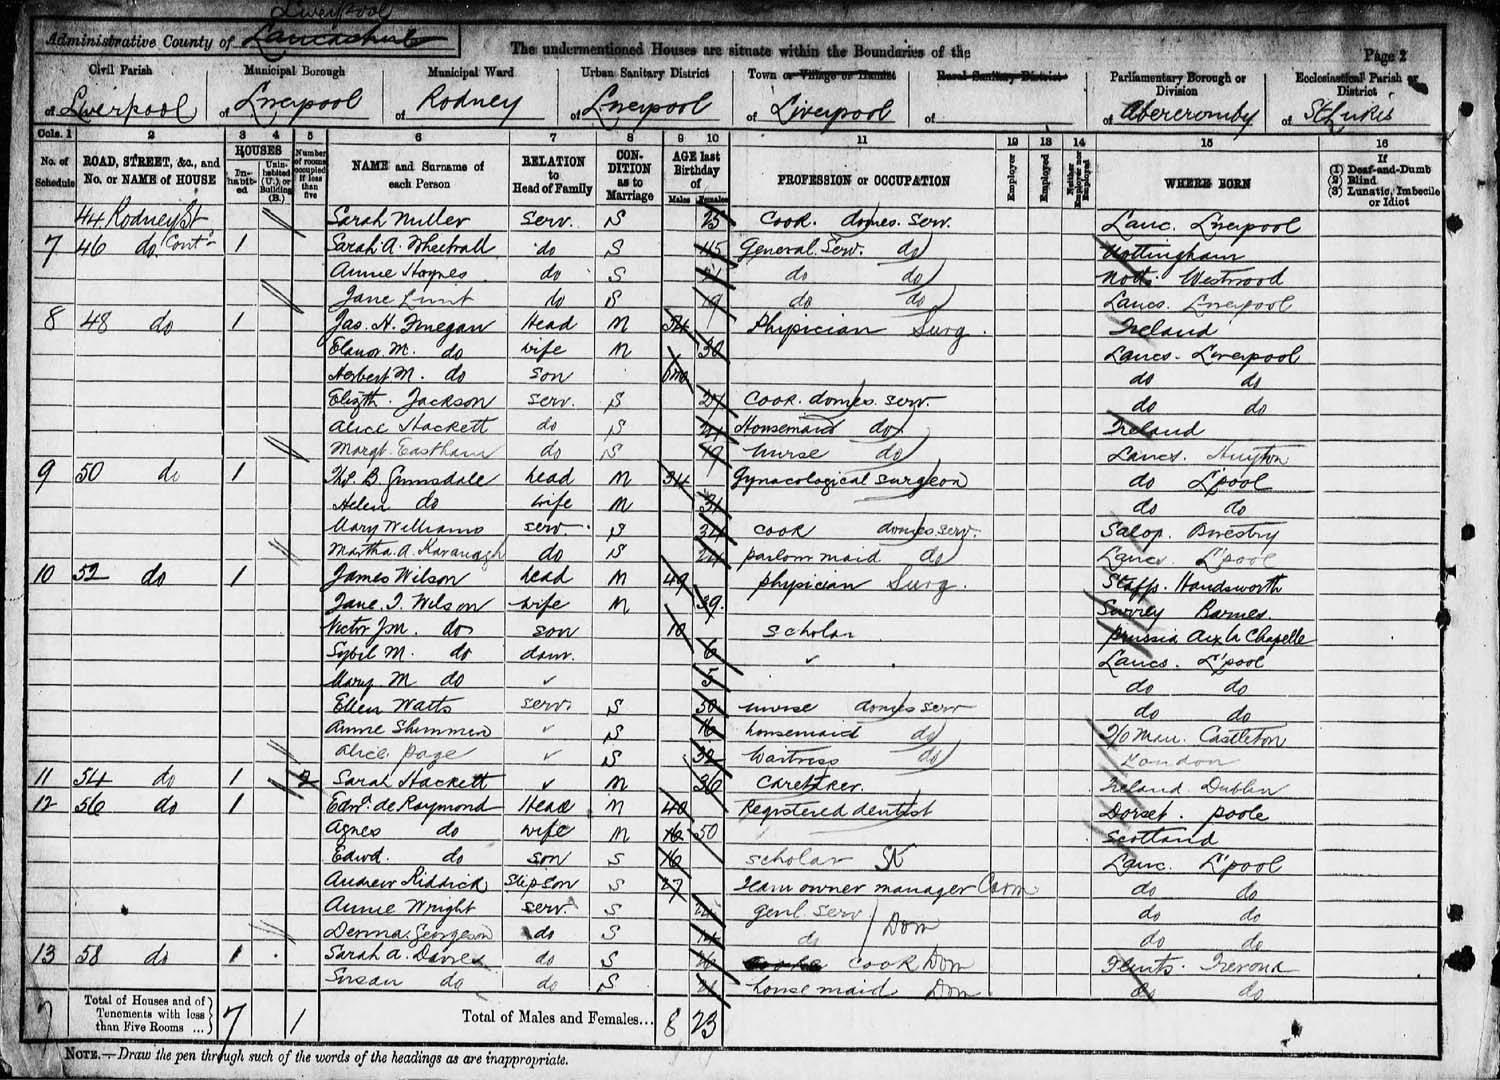 Liverpool
Administrative County of Lancashire
The undermentioned Houses are situate within the Boundaries of the
Page 2
Civil Parish of Liverpool
Municipal Borough of Liverpool
Municipal Ward of Rodney
Urban Sanitary District of Liverpool
Town or Village or Hamlet of Liverpool
Rural Sanitary District of
Parliamentary Borough or Division of Abercromby
Ecclesiastical Parish or District of St Lukes
Cols. 1 2 3 4 5 6 7 8 9 10 11 12 13 14 15 16
No. of Schedule
ROAD, STREET, &c., and No. or NAME of HOUSE
HOUSES
Inhabited
Uninhabited (U.) or Building (B.)
Number of rooms occupied if less than five
NAME and Surname of each Person
RELATION to Head of Family
CONDITION as to Marriage
AGE last Birthday of
Males Females
PROFESSION or OCCUPATION
Employer
Employed
Neither nor Employed
WHERE BORN
If (1) Deaf-and-Dumb (2) Blind (3) Lunatic, Imbecile or Idiot
44 Rodney St Sarah Miller serv. S 25 Cook. domes. serv. Lanc. Liverpool
7 46 do Cont 1 Sarah A. do S General Serv. do Nottingham
Annie do S do do Notts
Jane do S 19 do do Lancs. Liverpool
8 48 do 1 Jas. H. Finegan Head M 54 Physician Surg. Ireland
Elanor M. do wife M 30 Lancs. Liverpool
Herbert M. do son 6mo do do
Elizth. Jackson serv. S Cook. domes. serv. do do
Alice Hackett do S Housemaid do Ireland
Margt. Eastham do S 19 Nurse do Lancs. Huyton
9 50 do 1 Ths. B. Grimsdale head M 34 Gynacological surgeon do L'pool
Helen do wife M 31 do do
Mary Williams serv. S 34 cook domes serv. Salop.
Martha. A. Kavanagh do S parlour maid do Lancs. L'pool
10 52 do 1 James Wilson head M 49 physician Surg. Staffs. Handsworth
Jane. I. Wilson wife M 39 Surrey Barnes.
Victor J.M. do son 10 scholar Prussia Aix la Chapelle
Sybil M. do daur. 6 Lancs. L'pool
Mary. M do 5 do do
Ellen Watts serv. S 50 nurse domes serv do do
Annie S 16 housemaid do I/o Man. Castleton
Alice Page S 32 Waitress do London
11 54 do 1 2 Sarah Hackett M 36 Caretaker. Ireland Dublin
12 56 do 1 Edwd. de Raymond Head M 40 Registered dentist Dorset. Poole
Agnes do wife M 16 50 Scotland
Edwd. do son S 16 scholar Lanc. L'pool
Andrew Riddick Stepson S 27 Team owner manager do do
Annie Wright serv. S genl serv Dom do do
Georgeson do S do do do
13 58 do 1 Sarah A. Davies do S cook Dom Flints.
Susan do do S 21 house maid Dom do do
7 Total of Houses and of Tenements with less than Five Rooms ... 7 1 Total of Males and Females... 8 23
NOTE.—Draw the pen through such of the words of the headings as are inappropriate.